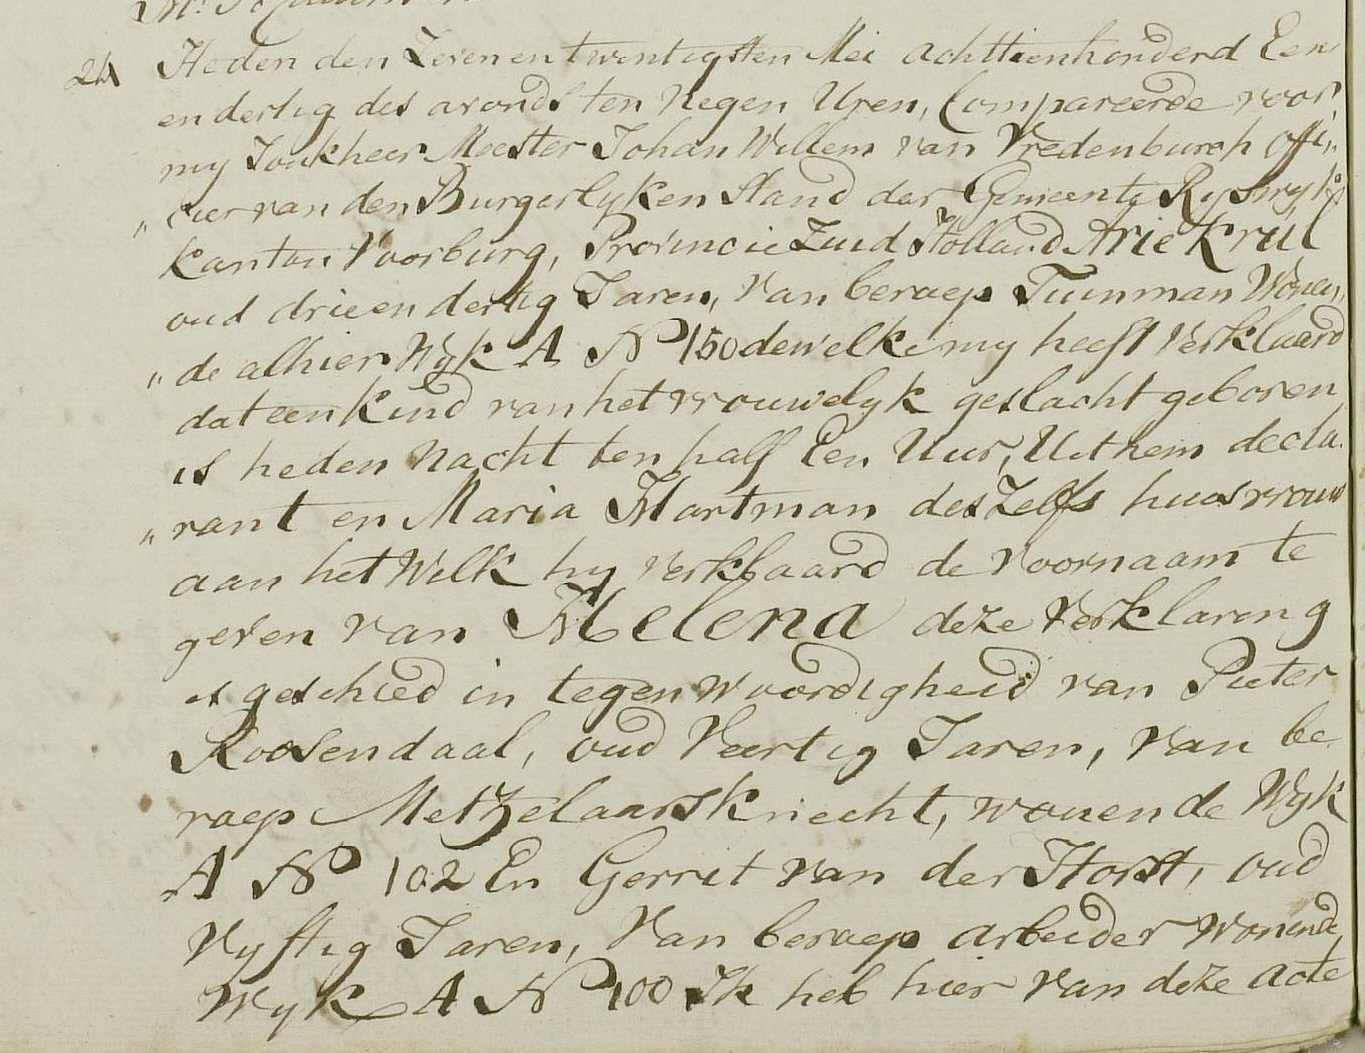 24 Heden den Zeven en twintigsten Mei achttienhonderd Een
en dertig des avonds ten Negen Uren, Compareerde voor
my Jonkheer Meester Johan Willem van Vredenburch offi„
„ cier van den Burgerlyken Stand der Gemeente Ryswyk
Kanton Voorburg, Provincie Zuid Holland Arie Krul
oud drie en dertig Jaren, Van beroep Tuinman Wonen„
„ de alhier Wyk A No 150 dewelke my heeft Verklaard
dat een Kind van het vrouwelyk geslacht geboren
is heden Nacht ten half Een Uur, Uit hem decla„
„ rant en Maria Hartman deszelfs huisvrouw
aan het Welk hy verklaard de Voornaam te
geven van Helena deze Verklaring
is geschied in tegenwoordigheid van Pieter
Roosendaal, oud Veertig Jaren, van be
roep Metzelaarsknecht, wonende Wyk
A No 102 En Gerrit van der Horst, oud
Vyftig Jaren, Van beroep arbeider Wonende
Wyk A No 100 Ik heb hier van deze acte